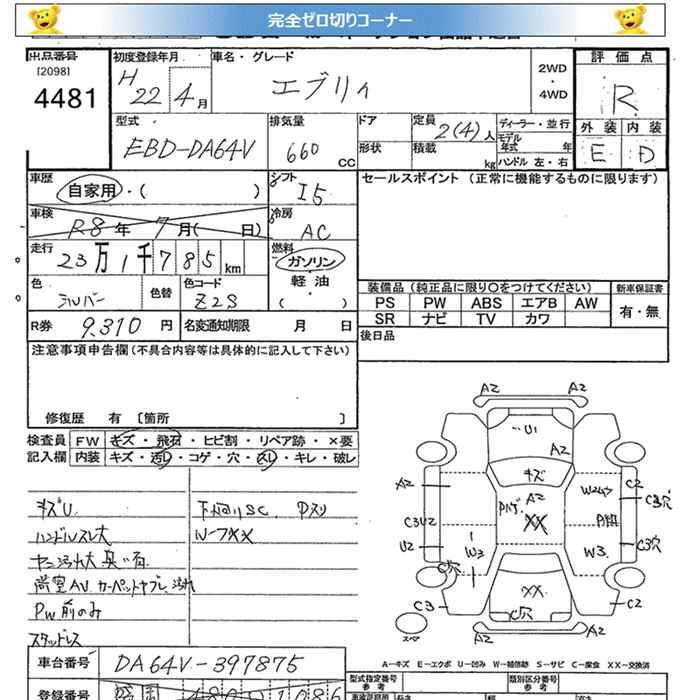 完全ゼロ切りコーナー
出品番号 初度登録年月 車名・グレード 2WD・4WD 評価点
[2098] 4481 H 22年 4月 エブリィ R
型式 EBD-DA64V 排気量 660 CC
ドア 定員 2(4)人 ディーラー・並行 外装 内装
形状 積載 kg モデル年式 年 ハンドル 左・右 E D
車歴 自家用・( ) シフト I5 セールスポイント (正常に機能するものに限ります)
車検 R8年 7月( 日) 冷房 AC
走行 23万1千785km 燃料 ガソリン
軽油・( )
色 シルバー 色替 色コード Z2S
装備品(純正品に限り○をつけてください) 新車保証書
PS PW ABS エアB AW 有・無
SR ナビ TV カワ
R券 9.310円 名変通知期限 月 日
後日品
注意事項申告欄(不具合内容等は具体的に記入して下さい)
修復歴 有 [箇所 ]
検査員 FW キズ・飛石・ヒビ割・リペア跡・×要
記入欄 内装 キズ・汚レ・コゲ・穴・スレ・キレ・破レ
キズU 下回りSC
ハンドルスレ大 W-7XX
ヤニ汚れ大 臭い有
荷室AV カーペットヤブレ、汚れ
PW前のみ
スタッドレス
A2 A2
U1
A2
キズ
A2 A2 W2 C2
C3穴
C3U2 XX
U2 W3 W3 C3穴
C穴
XX
C3 C穴 C2
スペア
A2 A2
A-キズ E-エクボ U-凹み W-補修跡 S-サビ C-腐食 XX-交換済
車台番号 DA64V-397875
型式指定番号 参考 類別区分番号 参考
登録番号 480